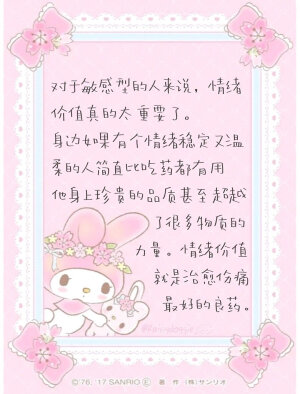 对于敏感型的人来说，情绪
价值真的太重要了。
身边如果有个情绪稳定又温
柔的人简直比吃药都有用
他身上珍贵的品质甚至超越
了很多物质的
力量。情绪价值
就是治愈伤痛
最好的良药。
©'76,'17 SANRIO Ⓔ 著作 (株)サンリオ